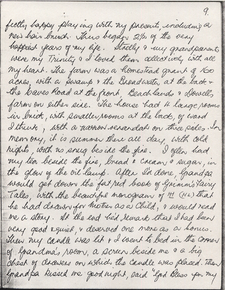 9
pretty happy playing with my present, including a
new hair brush. Thus began 2½ of the very
happiest years of my life. Firstly & my grandparents
were my Trinity & I loved them collectively with all
my heart. The farm was a homestead grant of 160
acres, with a swamp & the Broadwells, at the back &
the Eaves Road at the front, Beachlands &
farm on either side. The house had 4 large rooms
in brick, with smaller rooms at the back, of wood
& thick, with a narrow verandah on three sides. In
memory, it is summer there all day, with cold
nights, with us cosy beside the fire. I often had
my tea beside the fire, bread & cream & sugar, in
the glow of the oil lamp. After I'd done, Grandpa
would get down the fat red book of Grimm's Fairy
Tales, with the beautiful monogram of
he had drawn for Mother as a child, & would read
me a story. At the end he'd remark that I had been
very good & quiet, & deserved one more as a bonus.
Then my candle was lit & I went to bed in the corner
of Grandma's room, a screen beside me & a big
chest of drawers on which the candle was placed. Then
Grandpa kissed me good night, said "God bless you my